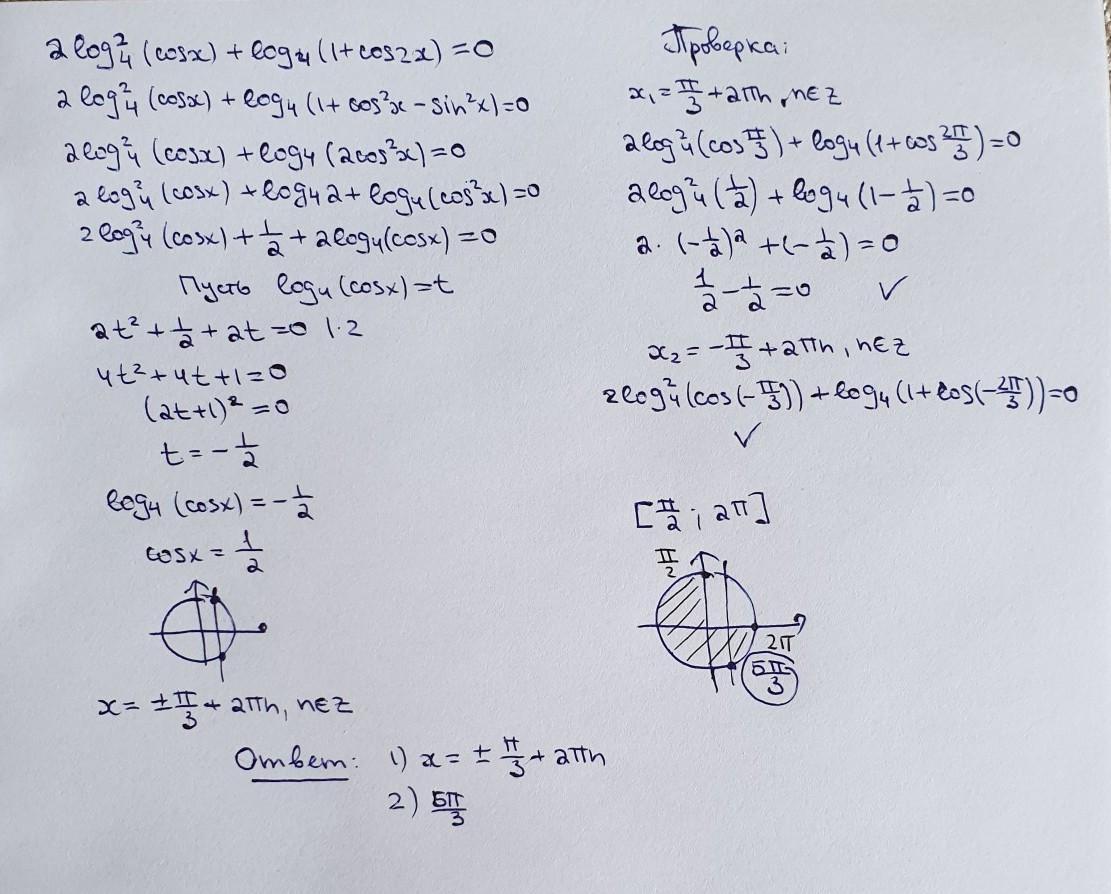 2log₄²(cosx) + log₄(1+cos2x) = 0
2log₄²(cosx) + log₄(1+cos²x - sin²x)=0
2log₄²(cosx) + log₄(2cos²x)=0
2log₄²(cosx) + log₄2 + log₄(cos²x)=0
2log₄²(cosx) + 1/2 + 2log₄(cosx) = 0
Пусть log₄(cosx)=t
2t² + 1/2 + 2t = 0 |·2
4t² + 4t + 1 = 0
(2t+1)² = 0
t = - 1/2
log₄(cosx) = - 1/2
cosx = 1/2
x = ± π/3 + 2πn, n∈Z
Проверка:
x₁ = π/3 + 2πn, n∈Z
2log₄²(cos π/3) + log₄(1+cos 2π/3) = 0
2log₄²(1/2) + log₄(1 - 1/2) = 0
2· (-1/2)² + (-1/2) = 0
1/2 - 1/2 = 0 ✓
x₂ = - π/3 + 2πn, n∈Z
2log₄²(cos(-π/3)) + log₄(1+cos(-2π/3))=0
✓
[π/2 ; 2π]
π/2
2π
5π/3
Ответ: 1) x = ± π/3 + 2πn
2) 5π/3